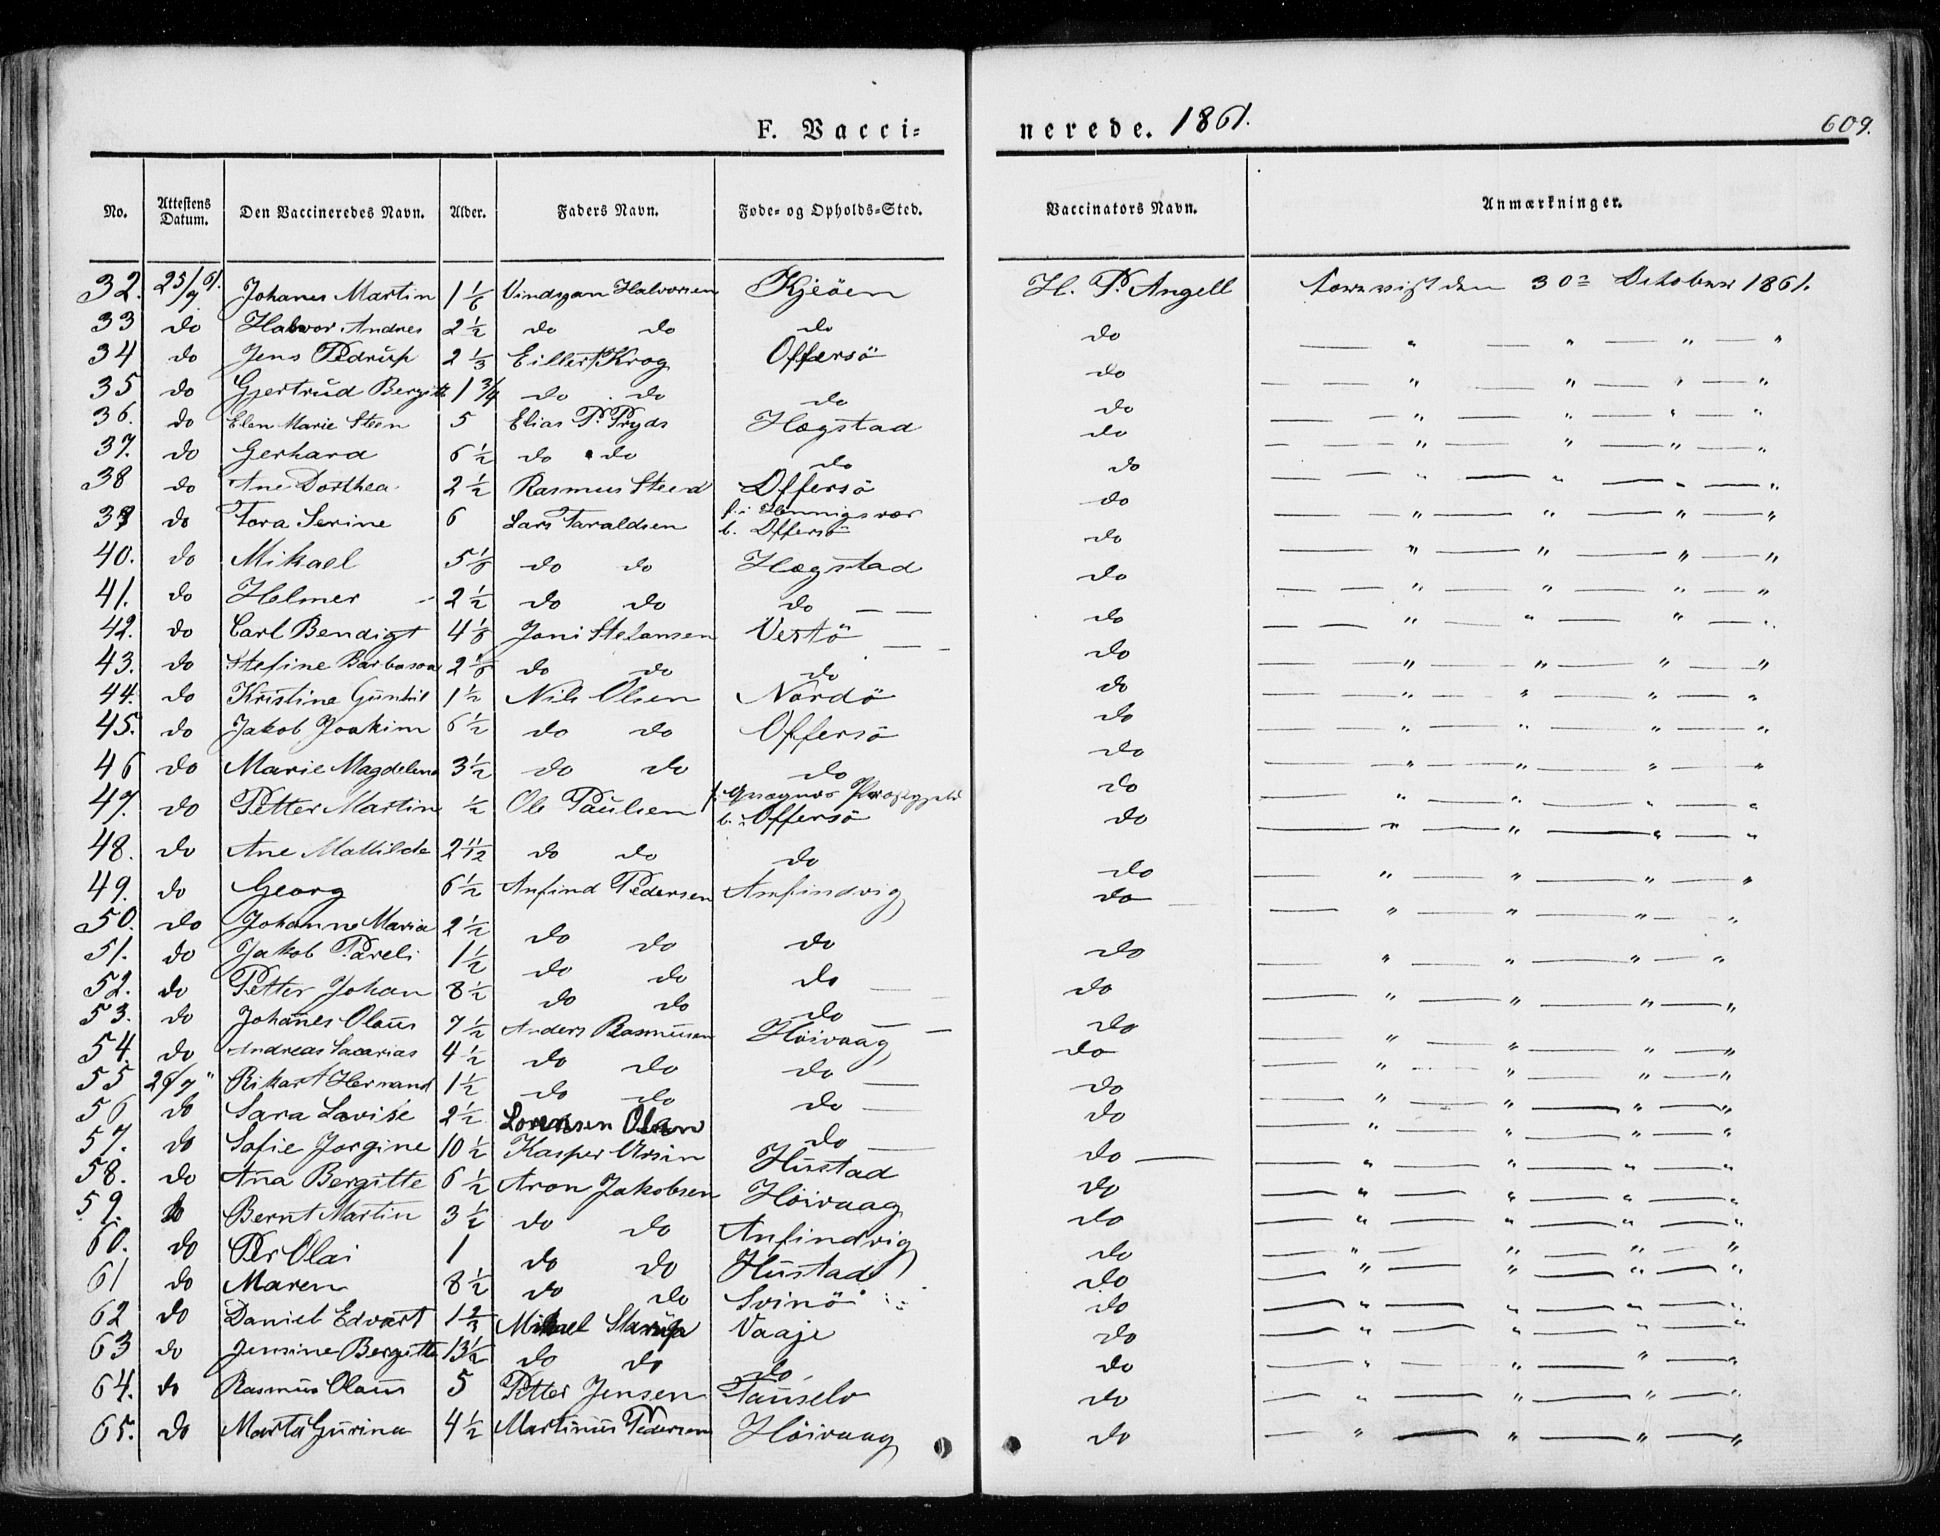 F. Vacci=
nerede. 1861.
609.
No. Attestens Datum. Den Vaccineredes Navn. Alder. Faders Navn. Føde- og Opholds-Sted. Vaccinators Navn. Anmærkninger.
32. 25/9 61. Johanes Martin 1 1/6 Halvorsen Kjeöen H. P. Angell den 30 October 1861.
33 do Halvor Andres 2 1/2 do do do do — " — " — " — "
34 do Jens Pedrup 2 1/3 Eillert Krog Offersö do — " — " — " — "
35 do Gjertrud Bergitte 1 3/4 do do do do — " — " — " — "
36. do Elen Marie Steen 5 Elias P. Pryds Hægstad do — " — " — " — "
37. do Gerhard 6 1/2 do do do do — " — " — " — "
38 do Ane Dorthea 2 1/2 Rasmus Steen Offersö do — " — " — " — "
39 do Tora Serine 6 Lars Taraldsen f. i Hennigsvær b. Offersö do — " — " — " — "
40. do Mikael 5 1/6 do do Hægstad do — " — " — " — "
41. do Helmer 2 1/2 do do do — — do — " — " — " — "
42. do Carl Bendigt 4 1/6 Joni Stefansen Vestö do — " — " — " — "
43. do Stefine Barbara 2 1/6 do do do do — " — " — " — "
44. do Kristine Gunhil 1 1/2 Nils Olsen Nordö do — " — " — " — "
45. do Jakob Joakim 6 1/2 do do Offersö do — " — " — " — "
46 do Marie Magdelena 3 1/2 do do do do — " — " — " — "
47. do Petter Martin 1/2 Ole Paulsen b. Offersö do — " — " — " — "
48. do Ane Mathilde 2 11/12 do do do do — " — " — " — "
49. do Georg 6 1/2 Anfind Pedersen Anfindvig do — " — " — " — "
50. do Johanne Maria 2 1/2 do do do do — " — " — " — "
51. do Jakob Pareli 1 1/2 do do do do — " — " — " — "
52. do Petter Johan 8 1/2 do do do do — " — " — " — "
53. do Johanes Olaus 7 1/2 Anders Rasmusen Höivaag do — " — " — " — "
54. do Andreas Sacarias 4 1/2 do do do do — " — " — " — "
55 26/9 " Rikart Hernand 1 1/2 do do do do — " — " — " — "
56 do Sara Lovise 2 1/2 Lorensen Olsen do do — " — " — " — "
57. do Sofie Jorgine 10 1/2 Kasper Ursin Hustad do — " — " — " — "
58. do Ana Bergitte 6 1/2 Aron Jakobsen Höivaag do — " — " — " — "
59. do Bernt Martin 3 1/2 do do Anfindvig do — " — " — " — "
60. do Per Olai 1 do do Hustad do — " — " — " — "
61 do Maren 8 1/2 do do Svinö do — " — " — " — "
62 do Daniel Edvart 1 2/3 Mikael Starup Vaaje do — " — " — " — "
63 do Jensine Bergitte 13 1/2 do do do do — " — " — " — "
64. do Rasmus Olaus 5 Petter Jensen Tauselv do — " — " — " — "
65. do Marta Gurina 4 1/2 Martinus Pedersen Höivaag do — " — " — " — "